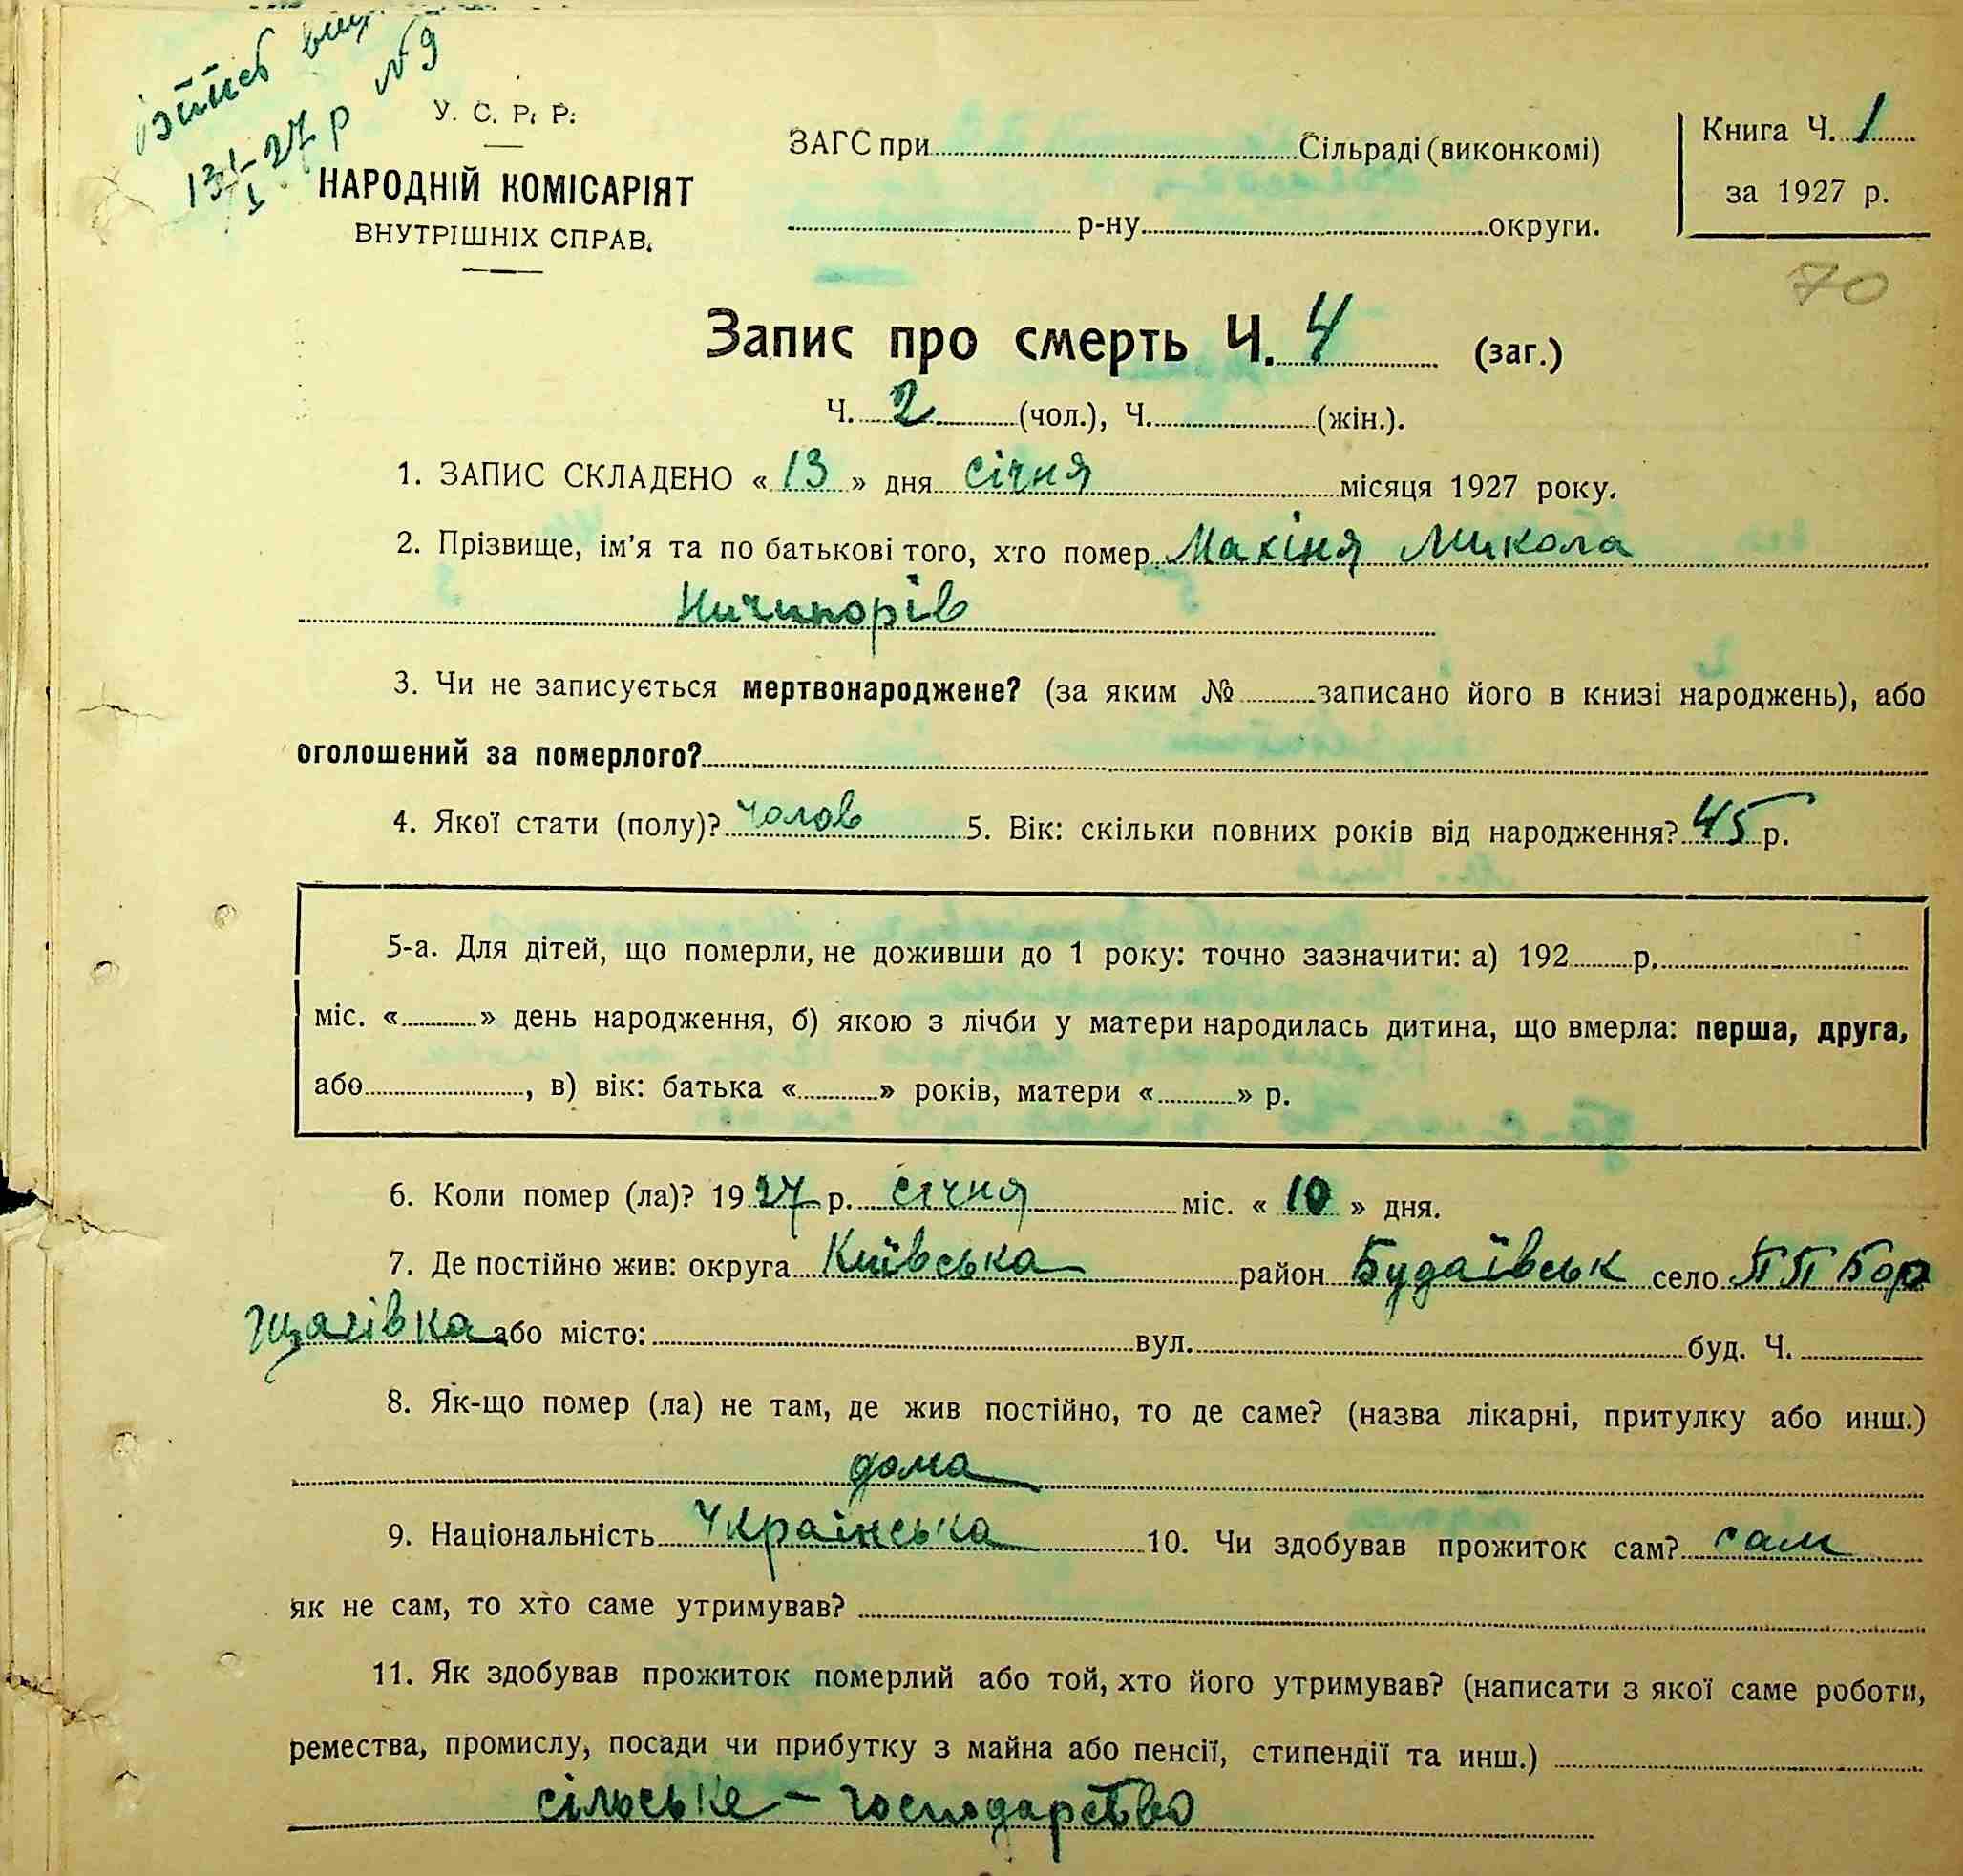 витяг вид
13/I-27 р №9
У. С. Р. Р.
НАРОДНІЙ КОМІСАРІЯТ
ВНУТРІШНІХ СПРАВ.
ЗАГС при Сільраді (виконкомі)
р-ну округи.
Книга Ч. 1
за 1927 р.
70
Запис про смерть Ч. 4 (заг.)
Ч. 2 (чол.), Ч. (жін.).
1. ЗАПИС СКЛАДЕНО « 13 » дня січня місяця 1927 року.
2. Прізвище, ім'я та по батькові того, хто помер Махіня Микола
Ничипорів
3. Чи не записується мертвонароджене? (за яким № записано його в книзі народжень), або
оголошений за померлого?
4. Якої стати (полу)? чолов 5. Вік: скільки повних років від народження? 45 р.
5-а. Для дітей, що померли, не доживши до 1 року: точно зазначити: а) 192 р.
міс. « » день народження, б) якою з лічби у матери народилась дитина, що вмерла: перша, друга,
або , в) вік: батька « » років, матери « » р.
6. Коли помер (ла)? 1927 р. січня міс. « 10 » дня.
7. Де постійно жив: округа Київська район Будаївськ село ПП Бор
щагівка або місто: вул. буд. Ч.
8. Як-що помер (ла) не там, де жив постійно, то де саме? (назва лікарні, притулку або инш.)
дома
9. Національність Українська 10. Чи здобував прожиток сам? сам
як не сам, то хто саме утримував?
11. Як здобував прожиток померлий або той, хто його утримував? (написати з якої саме роботи,
ремества, промислу, посади чи прибутку з майна або пенсії, стипендії та инш.)
сільське - господарство